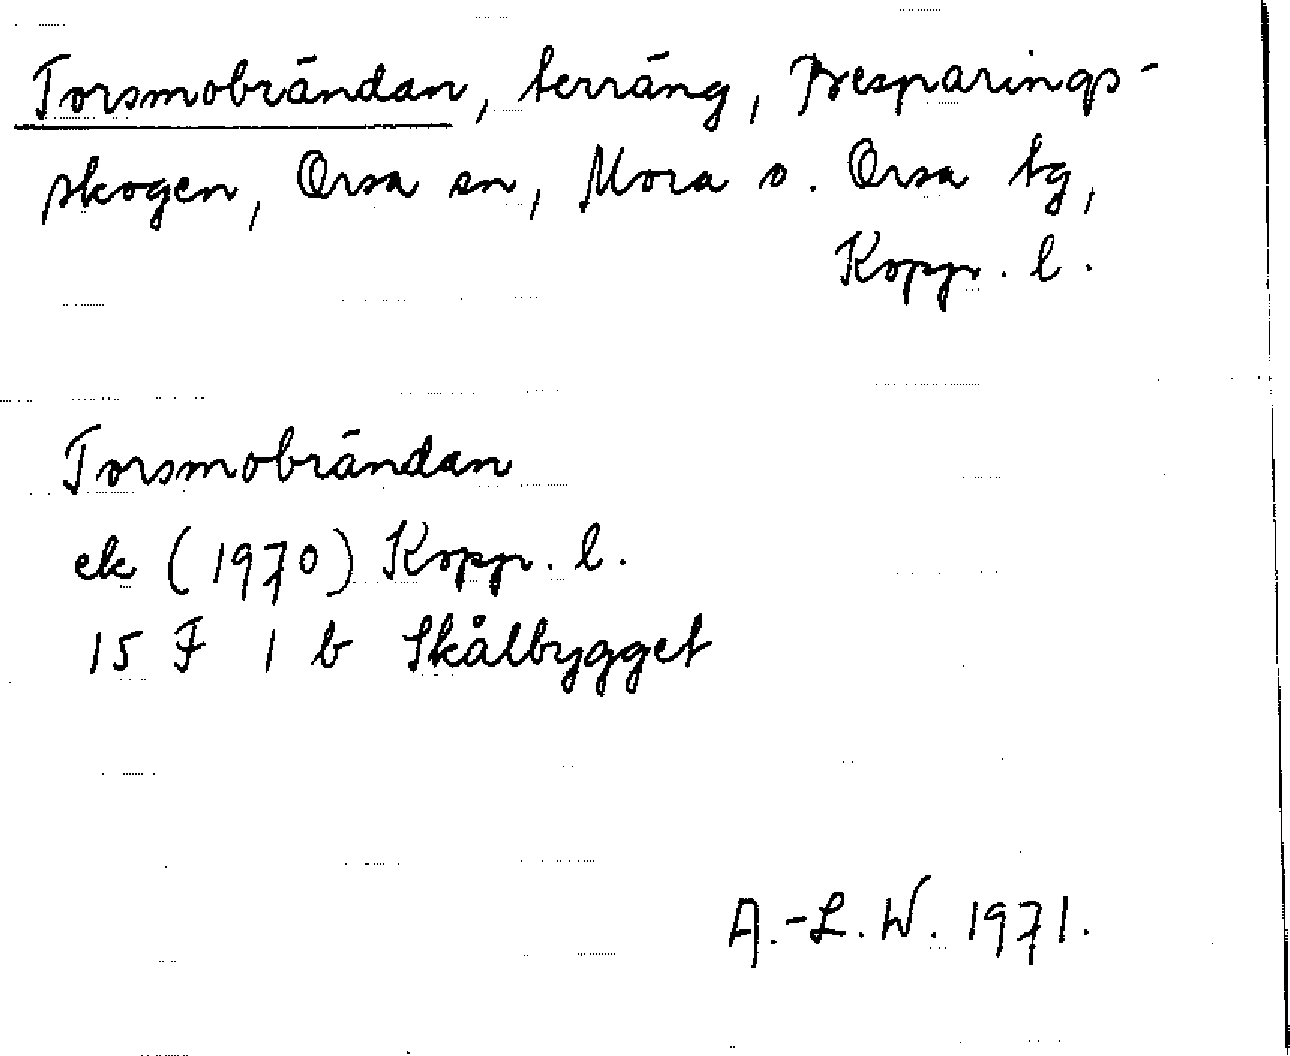 Torsmobrändan, terräng, Besparings-
skogen, Orsa sn, Mora o. Orsa tg,
Kopp. l.
Torsmobrändan
ek (1970) Kopp. l.
15 F 1 b Skålbygget
A.-L. W. 1971.